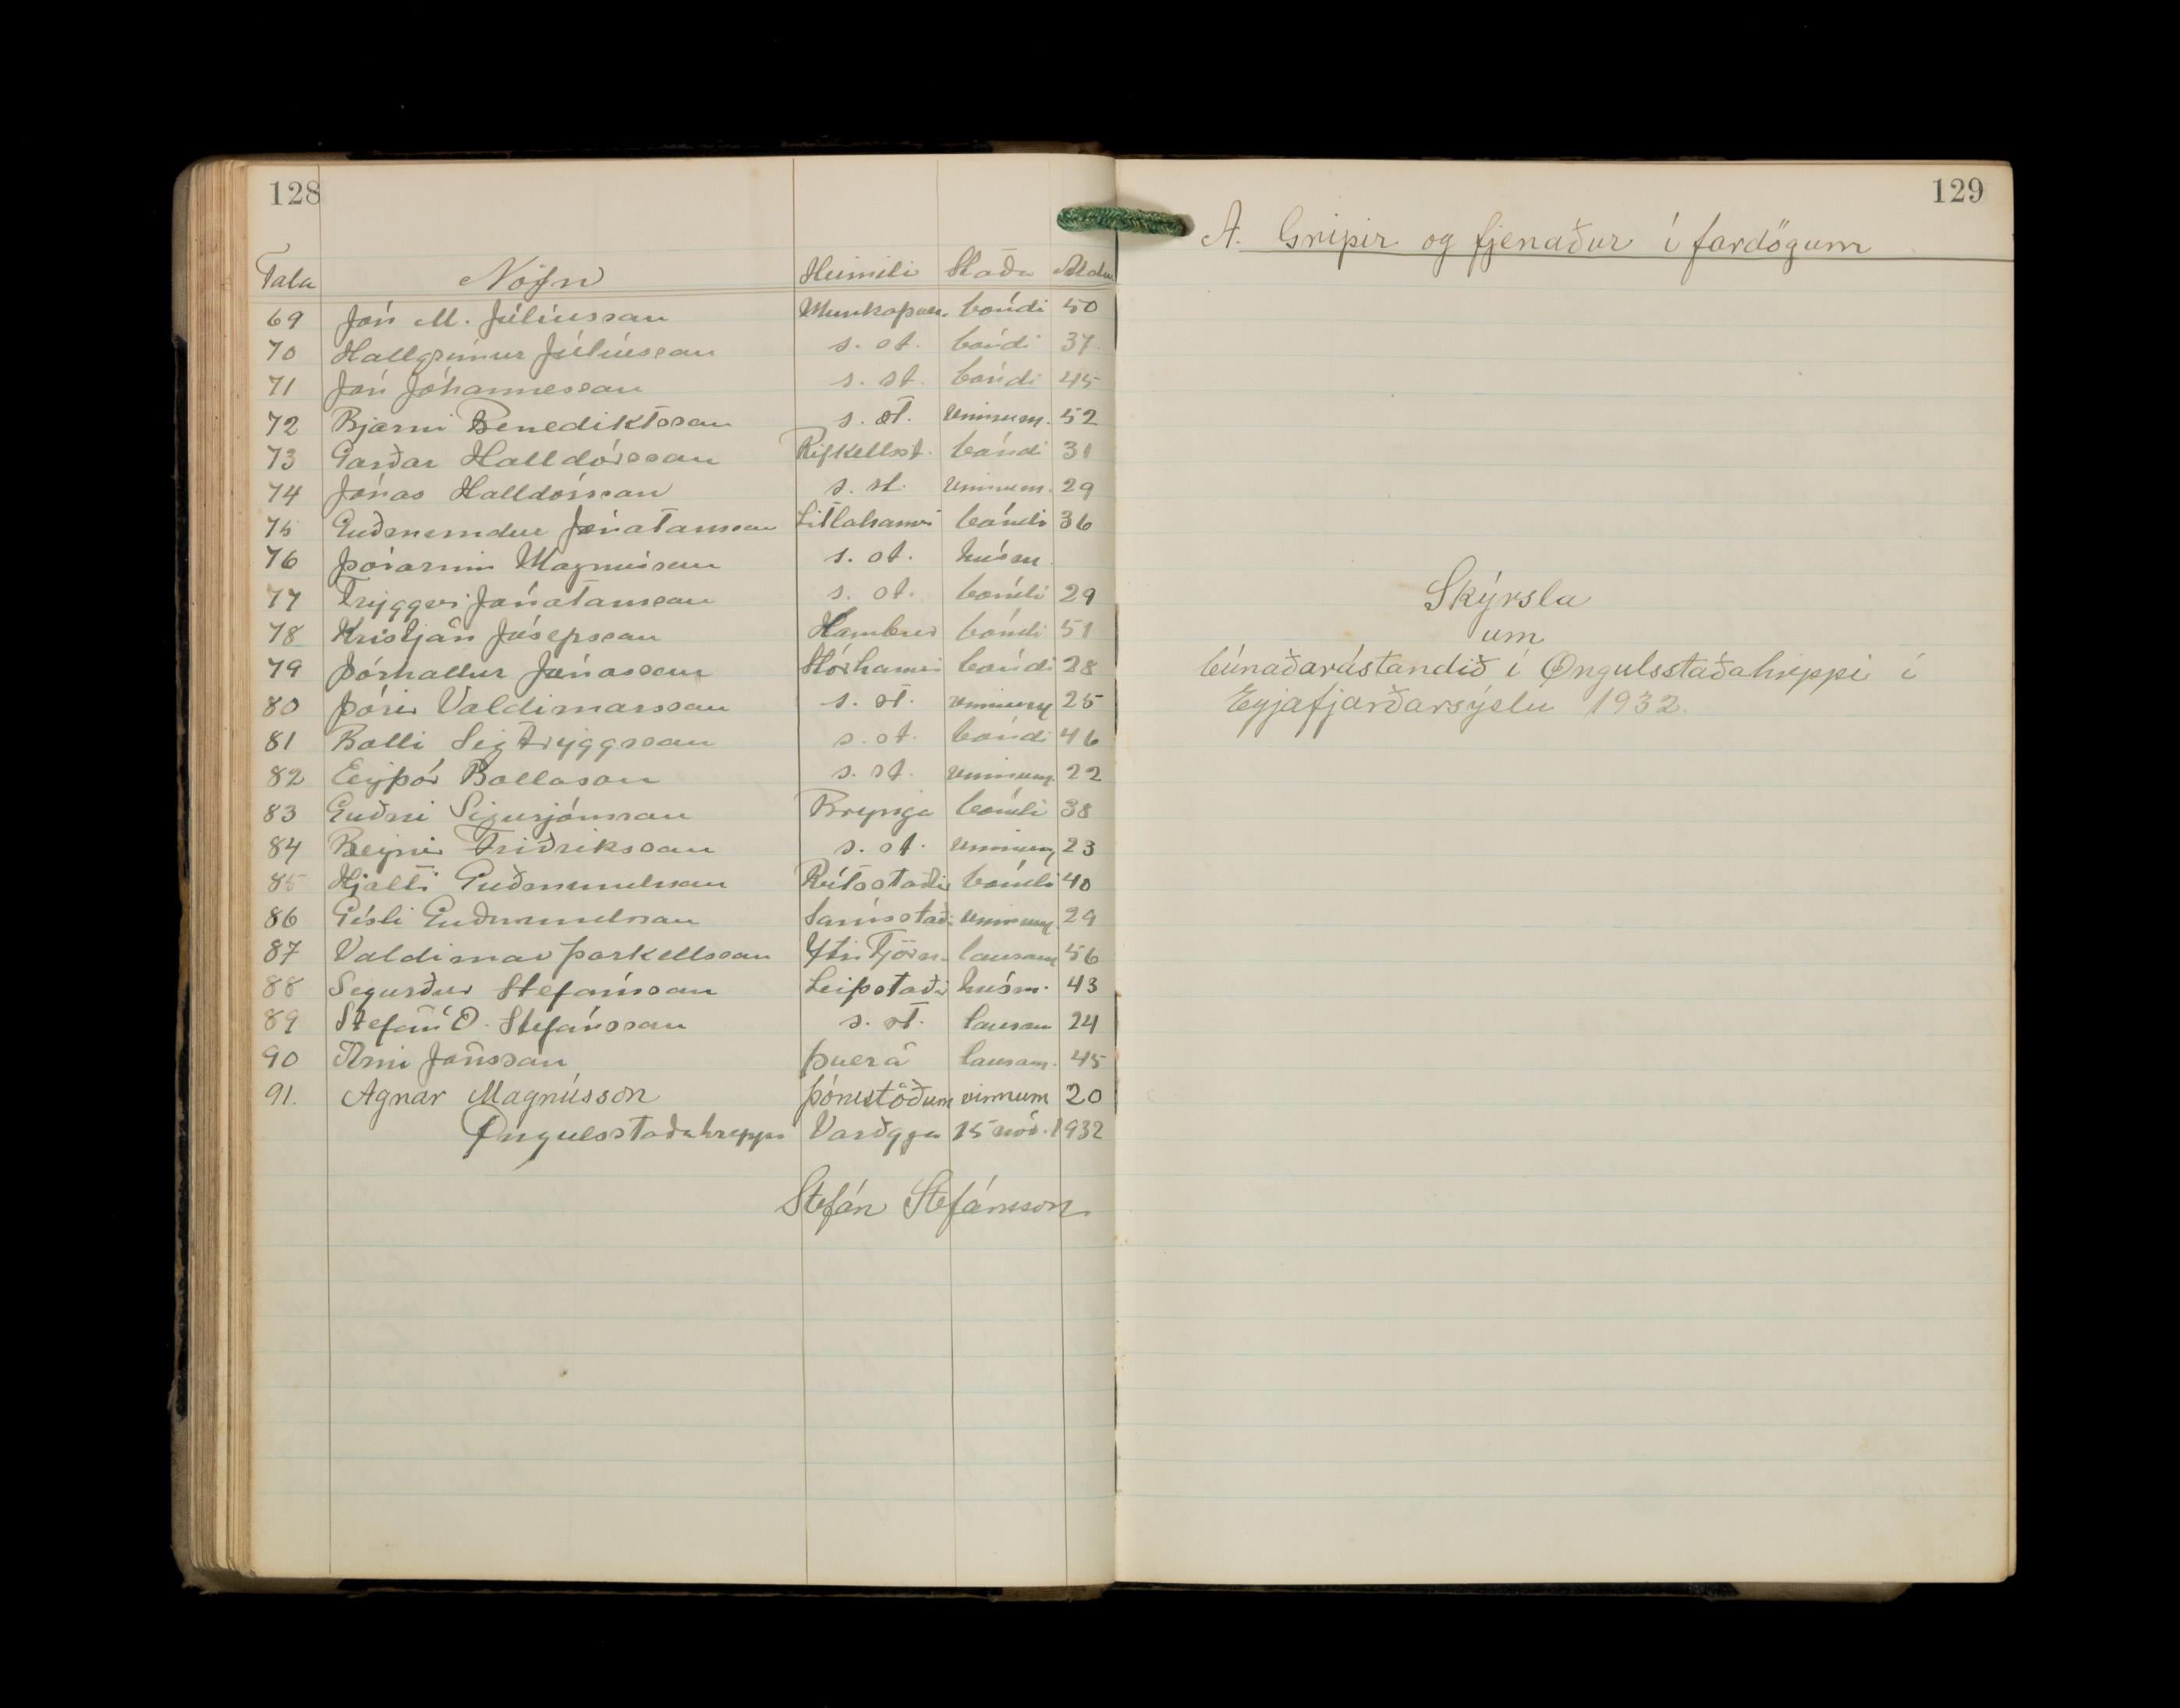 128
Tala Nöfn Heimili Staða Aldur
69 Jón M. Júlíusson Munkaþver. bóndi 50
70 Hallgrímur Júlíusson s. st. bóndi 37
71 Jón Jóhannesson s. st. bóndi 45
72 Bjarni Benediktsson s. st. vinnum. 52
73 Garðar Halldórsson Rifkellsst. bóndi 31
74 Jónas Halldórsson s. st. vinnum. 29
75 Guðmundur Jónatansson Litlahamri bóndi 36
76 Þórarinn Magnússon s. st. húsm
77 Tryggvi Jónatansson s. st. bóndi 29
78 Kristján Jósepsson Hambur bóndi 51
79 Þórhallur Jónasson Stórhamri bóndi 28
80 Þórir Valdimarsson s. st. vinnum 25
81 Balli Sigtryggsson s. st. bóndi 46
82 Eyþór Ballason s. st. vinnum. 22
83 Guðni Sigurjónsson bóndi 38
84 Reynir Friðriksson s. st. vinnum 23
85 Hjalti Guðmundsson Rútsstaðir bóndi 40
86 Gísli Guðmundsson Sámsstað. vinnum 29
87 Valdimar Þorkellsson Ytri Tjörn. lausam 56
88 Sigurður Stefánsson Leifsstaðir húsm. 43
89 Stefán O. Stefánsson s. st. lausam 24
90 Árni Jónsson Þverá lausam. 45
91. Agnar Magnússon Þórustöðum vinnum 20
Öngulsstaðahreppi Varðgjá 15 nóv. 1932
Stefán Stefánsson
129
A. Gripir og fjenaður í fardögum
Skýrsla
um
búnaðarástandið í Öngulsstaðahreppi í
Eyjafjarðarsýslu 1932.